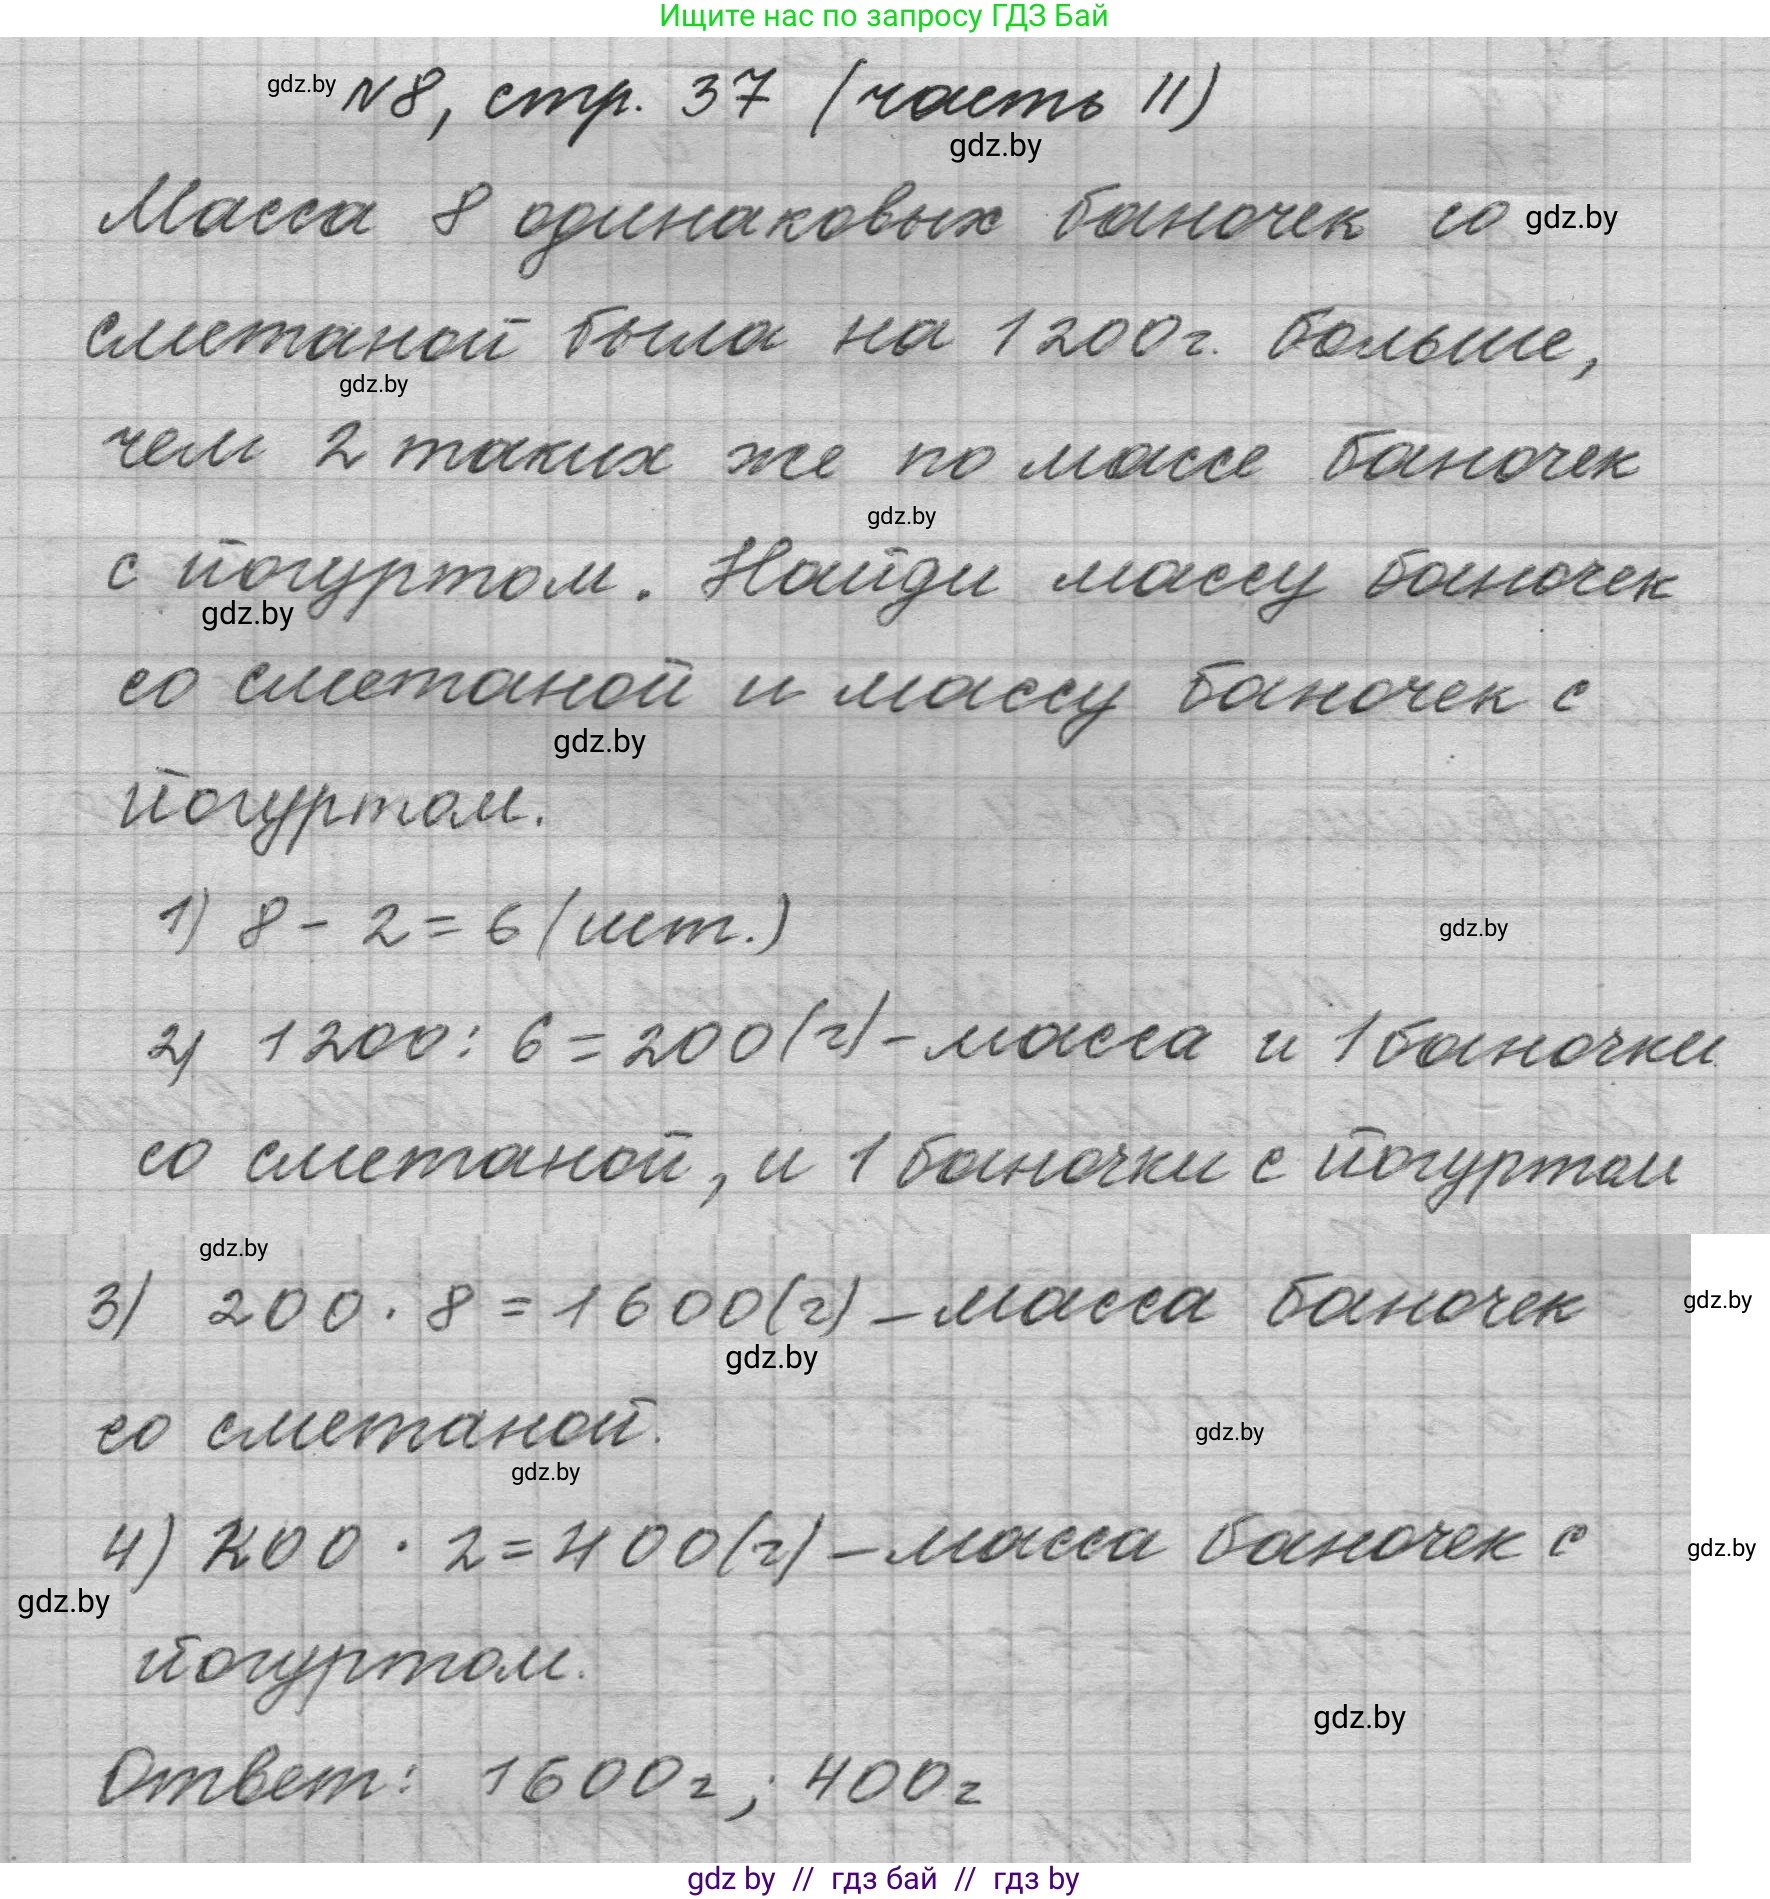 Ищите нас по запросу ГДЗ Бай
gdz.by
N8, стр. 37 (часть II)
gdz.by
Масса 8 одинаковых баночек со
gdz.by
сметаной была на 1200г. больше,
gdz.by
чем 2 таких же по массе баночек
gdz.by
с йогуртом. Найди массу баночек
gdz.by
со сметаной и массу баночек с
gdz.by
йогуртом.
1) 8 - 2 = 6 (шт.)
gdz.by
2) 1200 : 6 = 200 (г) - масса и 1 баночки
со сметаной, и 1 баночки с йогуртом
gdz.by
3) 200 · 8 = 1600 (г) - масса баночек
gdz.by
gdz.by
со сметаной.
gdz.by
gdz.by
4) 200 · 2 = 400 (г) - масса баночек с
gdz.by
gdz.by
йогуртом.
gdz.by
Ответ: 1600г; 400г
gdz by // гдз бай // гдз by